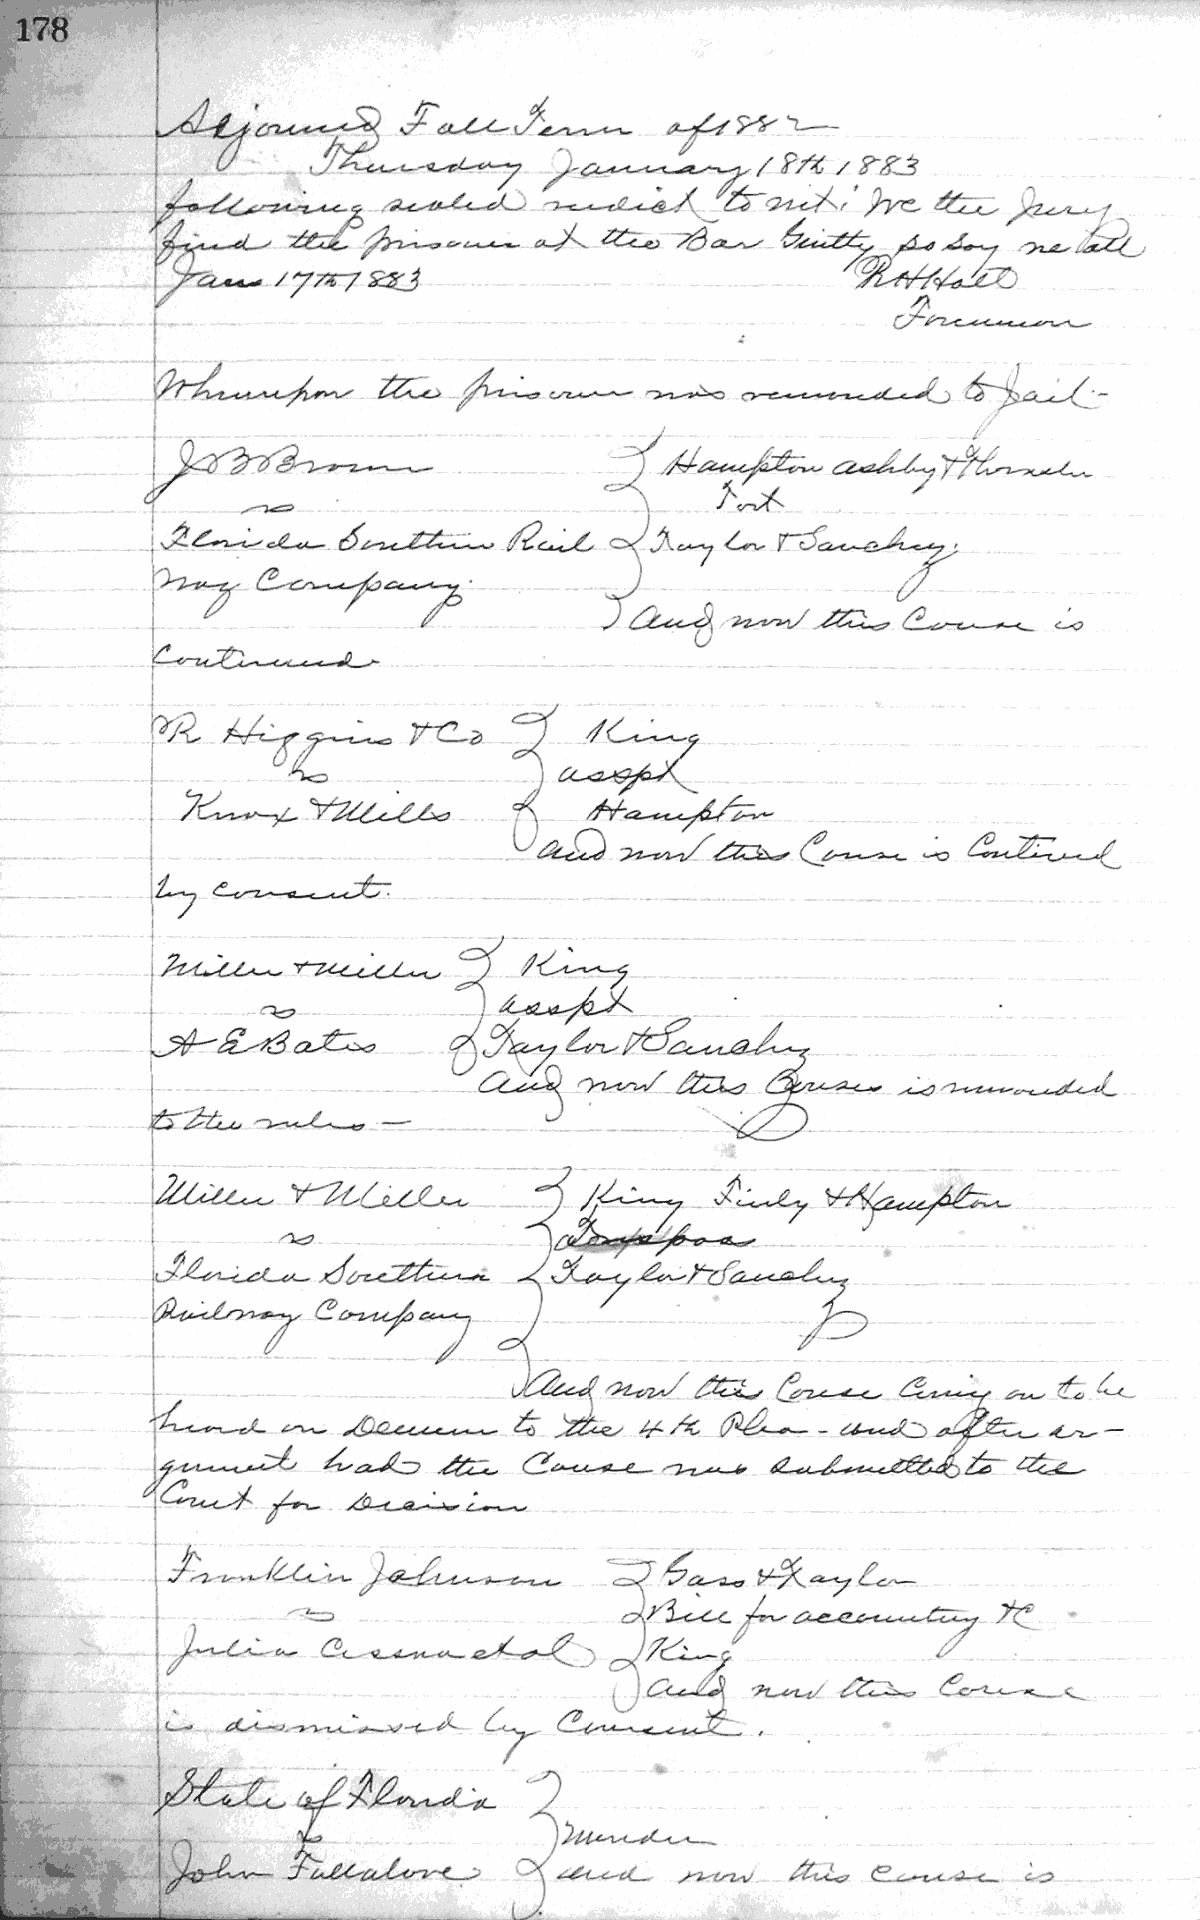 178
Adjourned Fall Term of 1882
Thursday January 18th 1883
following sealed verdict to wit: We the Jury
find the prisoner at the Bar Guilty so say we all
Jan 17th 1883 R H Hall
Foreman
Whereupon the prisoner was remanded to Jail -
J B Brown Hampton Ashby &
vs Tort
Florida Southern Rail Taylor & Sanchez.
way Company.
And now this Cause is
Continued.
R Higgins & Co King
vs asspt
Knox & Mills Hampton
And now this Cause is Contined
by consent.
Miller & Miller King
vs asspt
A E Bates Taylor & Sanchez
And now this Causes is remanded
to the rules -
Miller & Miller King Finly & Hampton
vs
Florida Southern Taylor & Sanchez
Railway Company
And now this Cause Coming on to be
heard on Demurrer to the 4th Plea - and after ar-
gument had the Cause was submitted to the
Court for Decision
Franklin Johnson Goss & Taylor
vs Bill for accounting &C
Julia Cessna et al King
And now this Cause
is dismissed by Consent.
State of Florida
vs Murder
John Fullalove and now this cause is